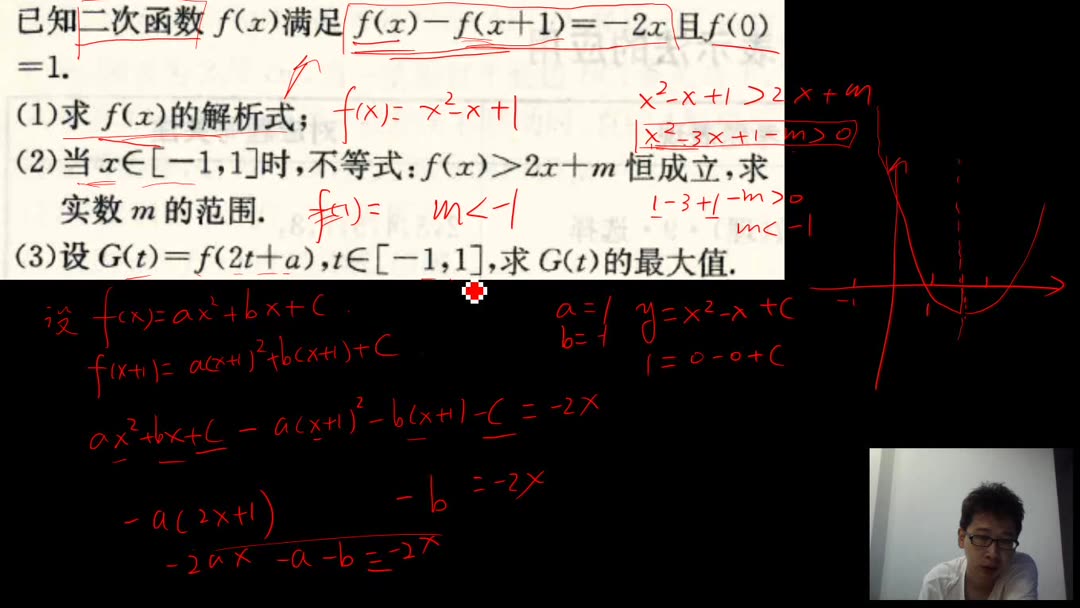 已知二次函数 f(x)满足 f(x)−f(x+1)=−2x 且 f(0)
=1.
(1)求 f(x)的解析式; f(x)= x²-x+1
x²-x+1>2x+m
x²-3x+1-m>0
(2)当 x∈[−1,1]时,不等式:f(x)>2x+m 恒成立,求
实数 m 的范围. f(1)= m<-1
1-3+1-m>0
m<-1
(3)设 G(t)=f(2t+a),t∈[−1,1],求 G(t)的最大值.
设 f(x)=ax²+bx+C
f(x+1)=a(x+1)²+b(x+1)+C
ax²+bx+C-a(x+1)²-b(x+1)-C=-2x
-a(2x+1) -b =-2x
-2ax -a-b=-2x
a=1
b=-1
y=x²-x+C
1=0-0+C
-1 1